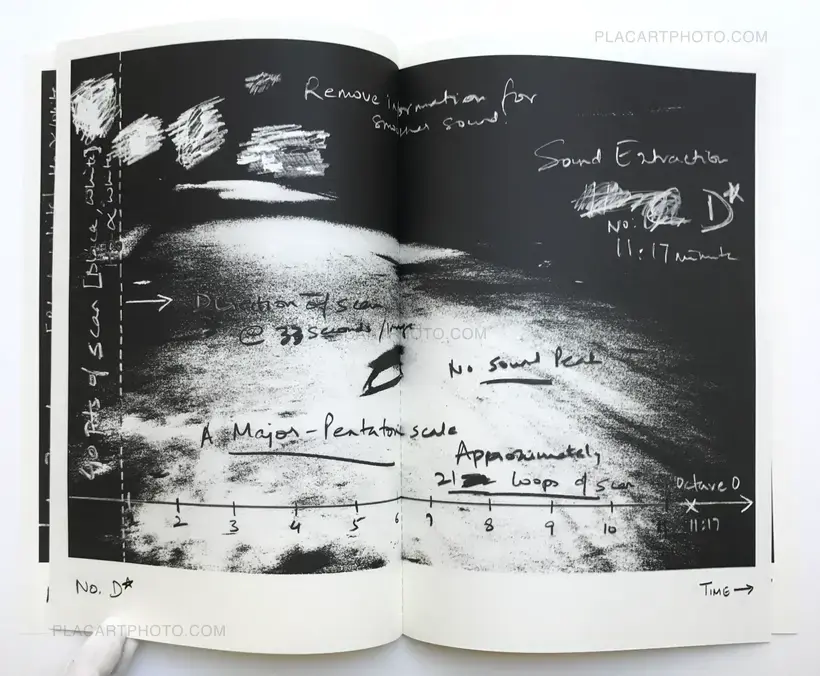 PLACARTPHOTO.COM
Remove information for
sound.
Sound Extraction
D*
No:
11:17 minute
of scan [black, white]
white
Direction of scan
@ 33 seconds/
PLACARTPHOTO.COM
No Sound Peak
A Major-Pentaton scale
Approximately
21 loops of scan
Octave 0
2 3 4 5 6 7 8 9 10
11:17
No. D*
TIME →
PLACARTPHOTO.COM